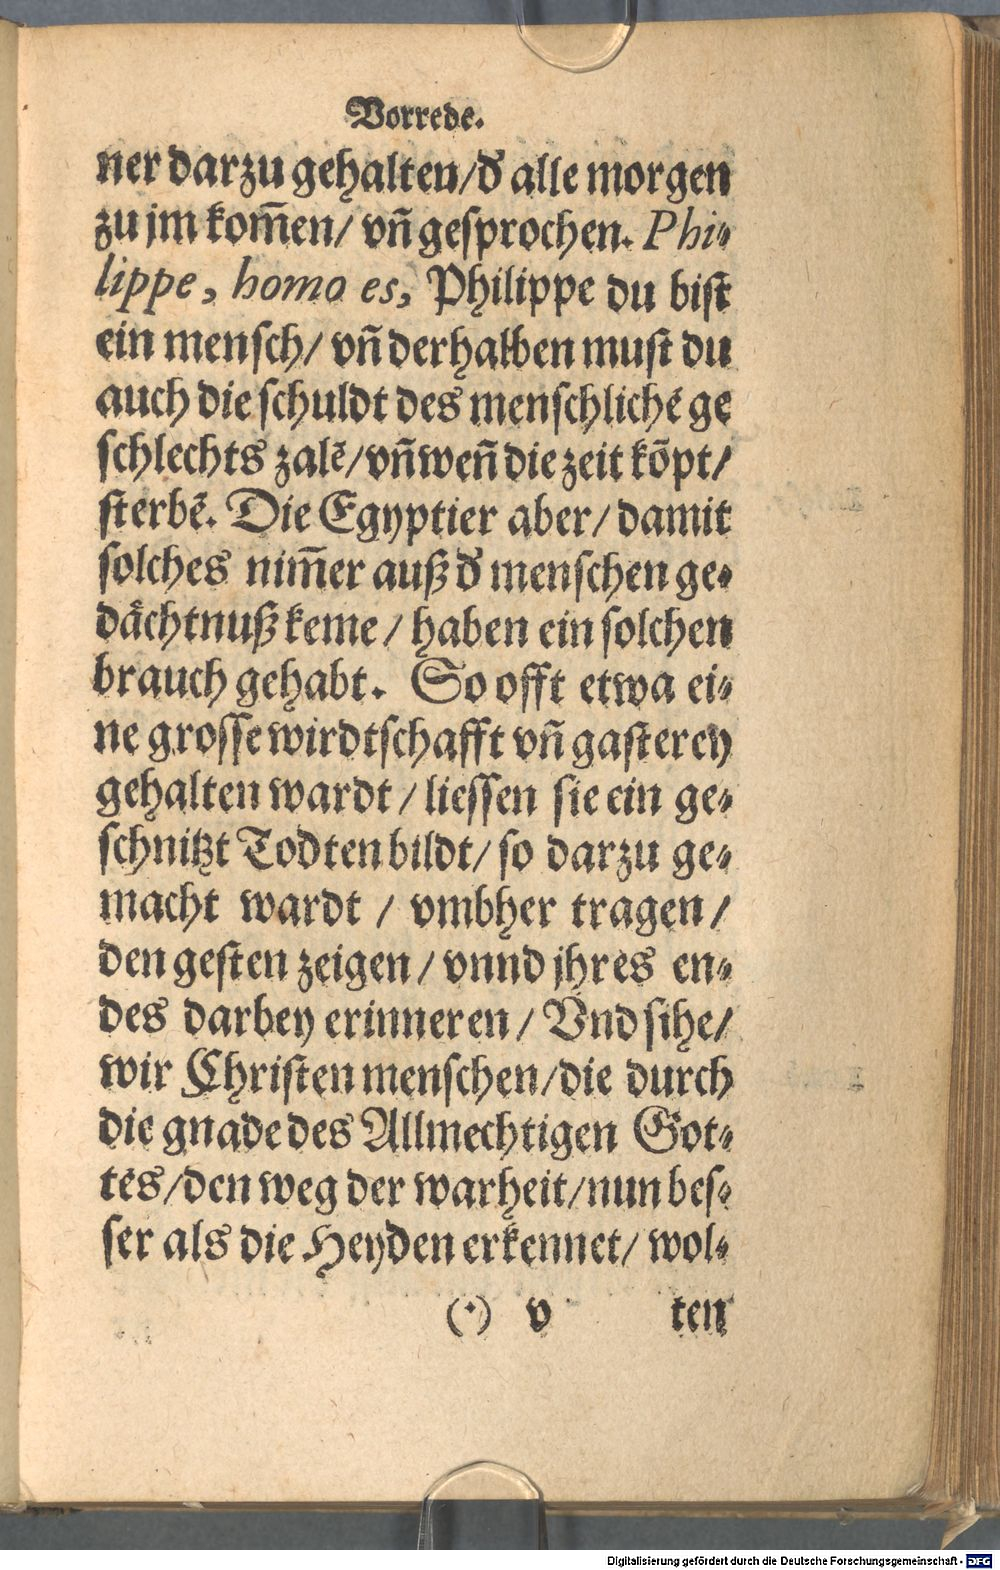 Vorrede.
ner darzu gehalten/ď alle morgen
zu jm kom̃en/ vñ gesprochen. Phi-
lippe, homo es, Philippe du bist
ein mensch/ vñ derhalben must du
auch die schuldt des menschlichē ge
schlechts zalē/vñ weñ die zeit kõpt/
sterbē. Die Egyptier aber/ damit
solches nim̃er auß ď menschen ge-
daͤchtnuß keme/ haben ein solchen
brauch gehabt. So offt etwa ei-
ne grosse wirdtschafft vñ gasterey
gehalten wardt/ liessen sie ein ge-
schnitzt Todten bildt/ so darzu ge-
macht wardt / vmbher tragen/
den gesten zeigen/ vnnd jhres en-
des darbey erinneren/ Vnd sihe/
wir Christen menschen/die durch
die gnade des Allmechtigen Got-
tes/den weg der warheit/nun bes-
ser als die Heyden erkennet/ wol-
(·) v ten
Digitalisierung gefördert durch die Deutsche Forschungsgemeinschaft - DFG